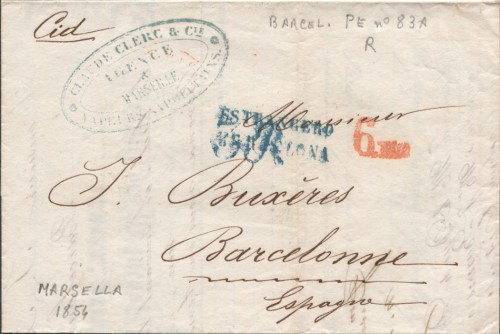 BARCEL. PE nº 83A
R
Cid
CLAUDE CLERC & Cie
AGENCE
de
MARSEILLE
VAPEURS
Monsieur
ESTRANGERO
BARCELONA
6
J. Buxéres
Barcelonne
Espagne
MARSELLA
1854